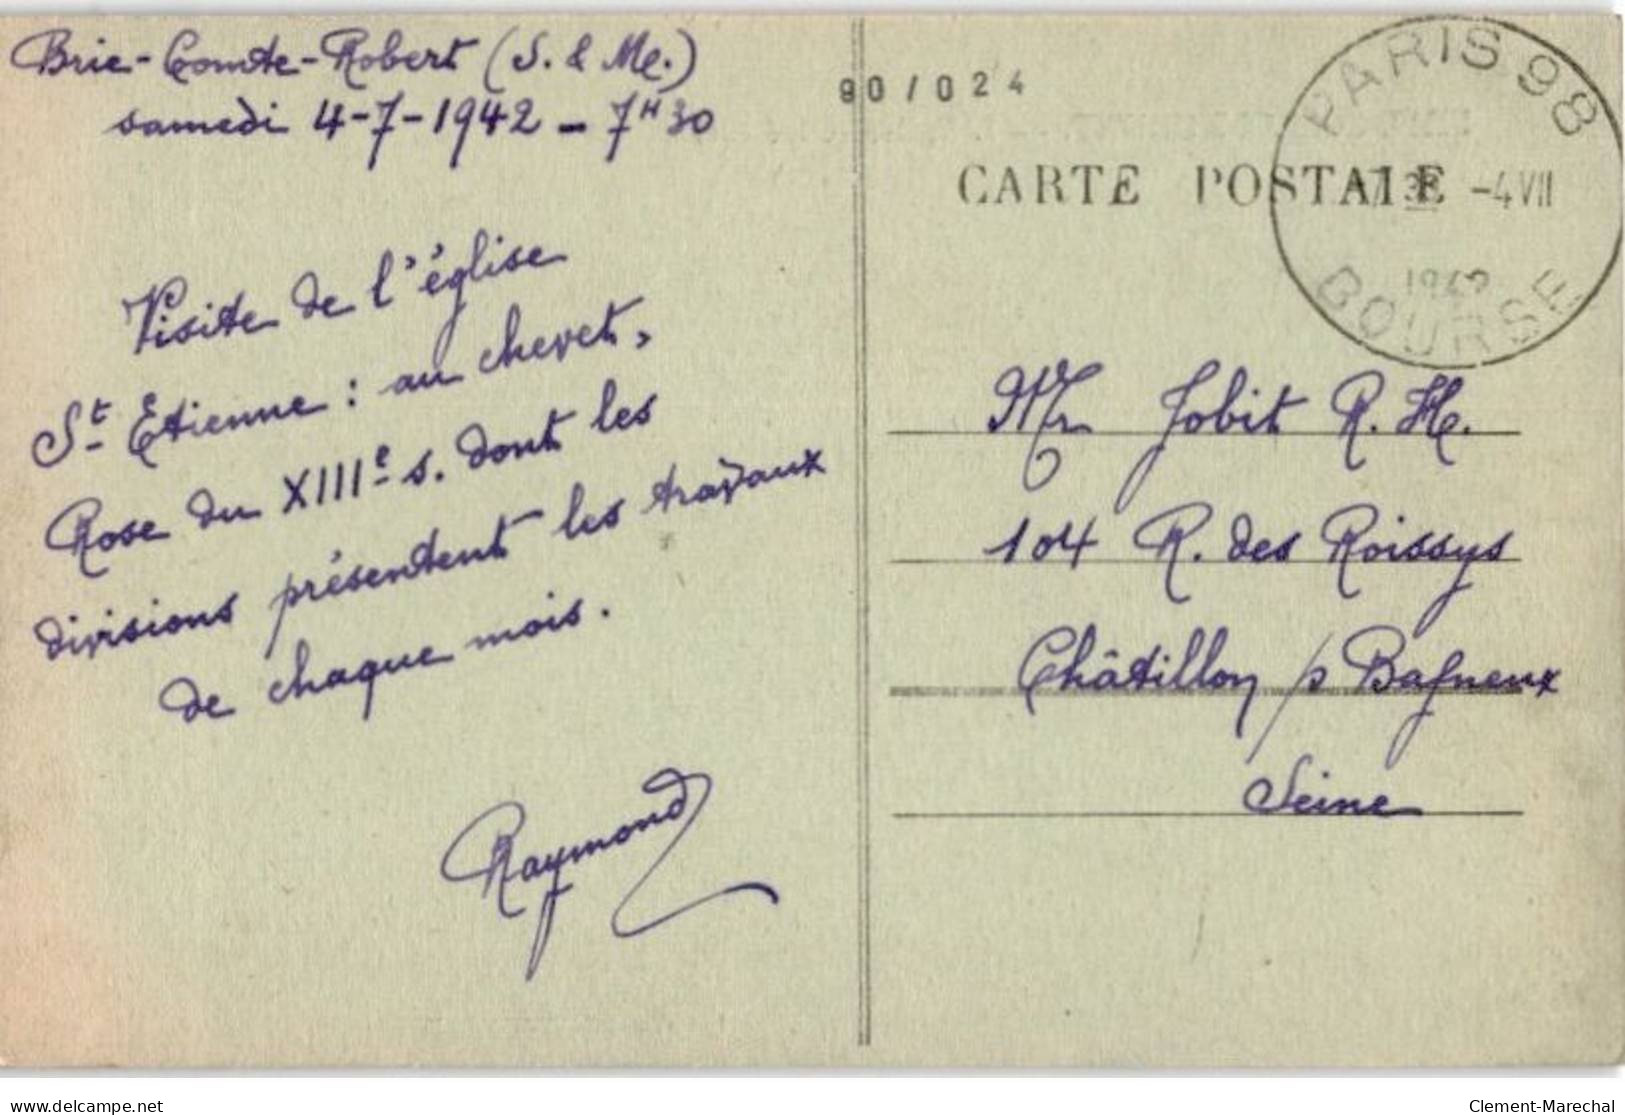 Brie-Comte-Robert (S. & Me.)
samedi 4-7-1942 - 7H30
Visite de l'église
St Etienne : au chevet,
Rose du XIIIe s. dont les
divisions présentent les travaux
de chaque mois.
Raymond
90/024
CARTE POSTALE
PARIS 98
-4 VII
1942
BOURSE
Mr Jobit R. H.
104 R. des Roissys
Châtillon s Bagneux
Seine
delcampe.net
Clement-Marechal